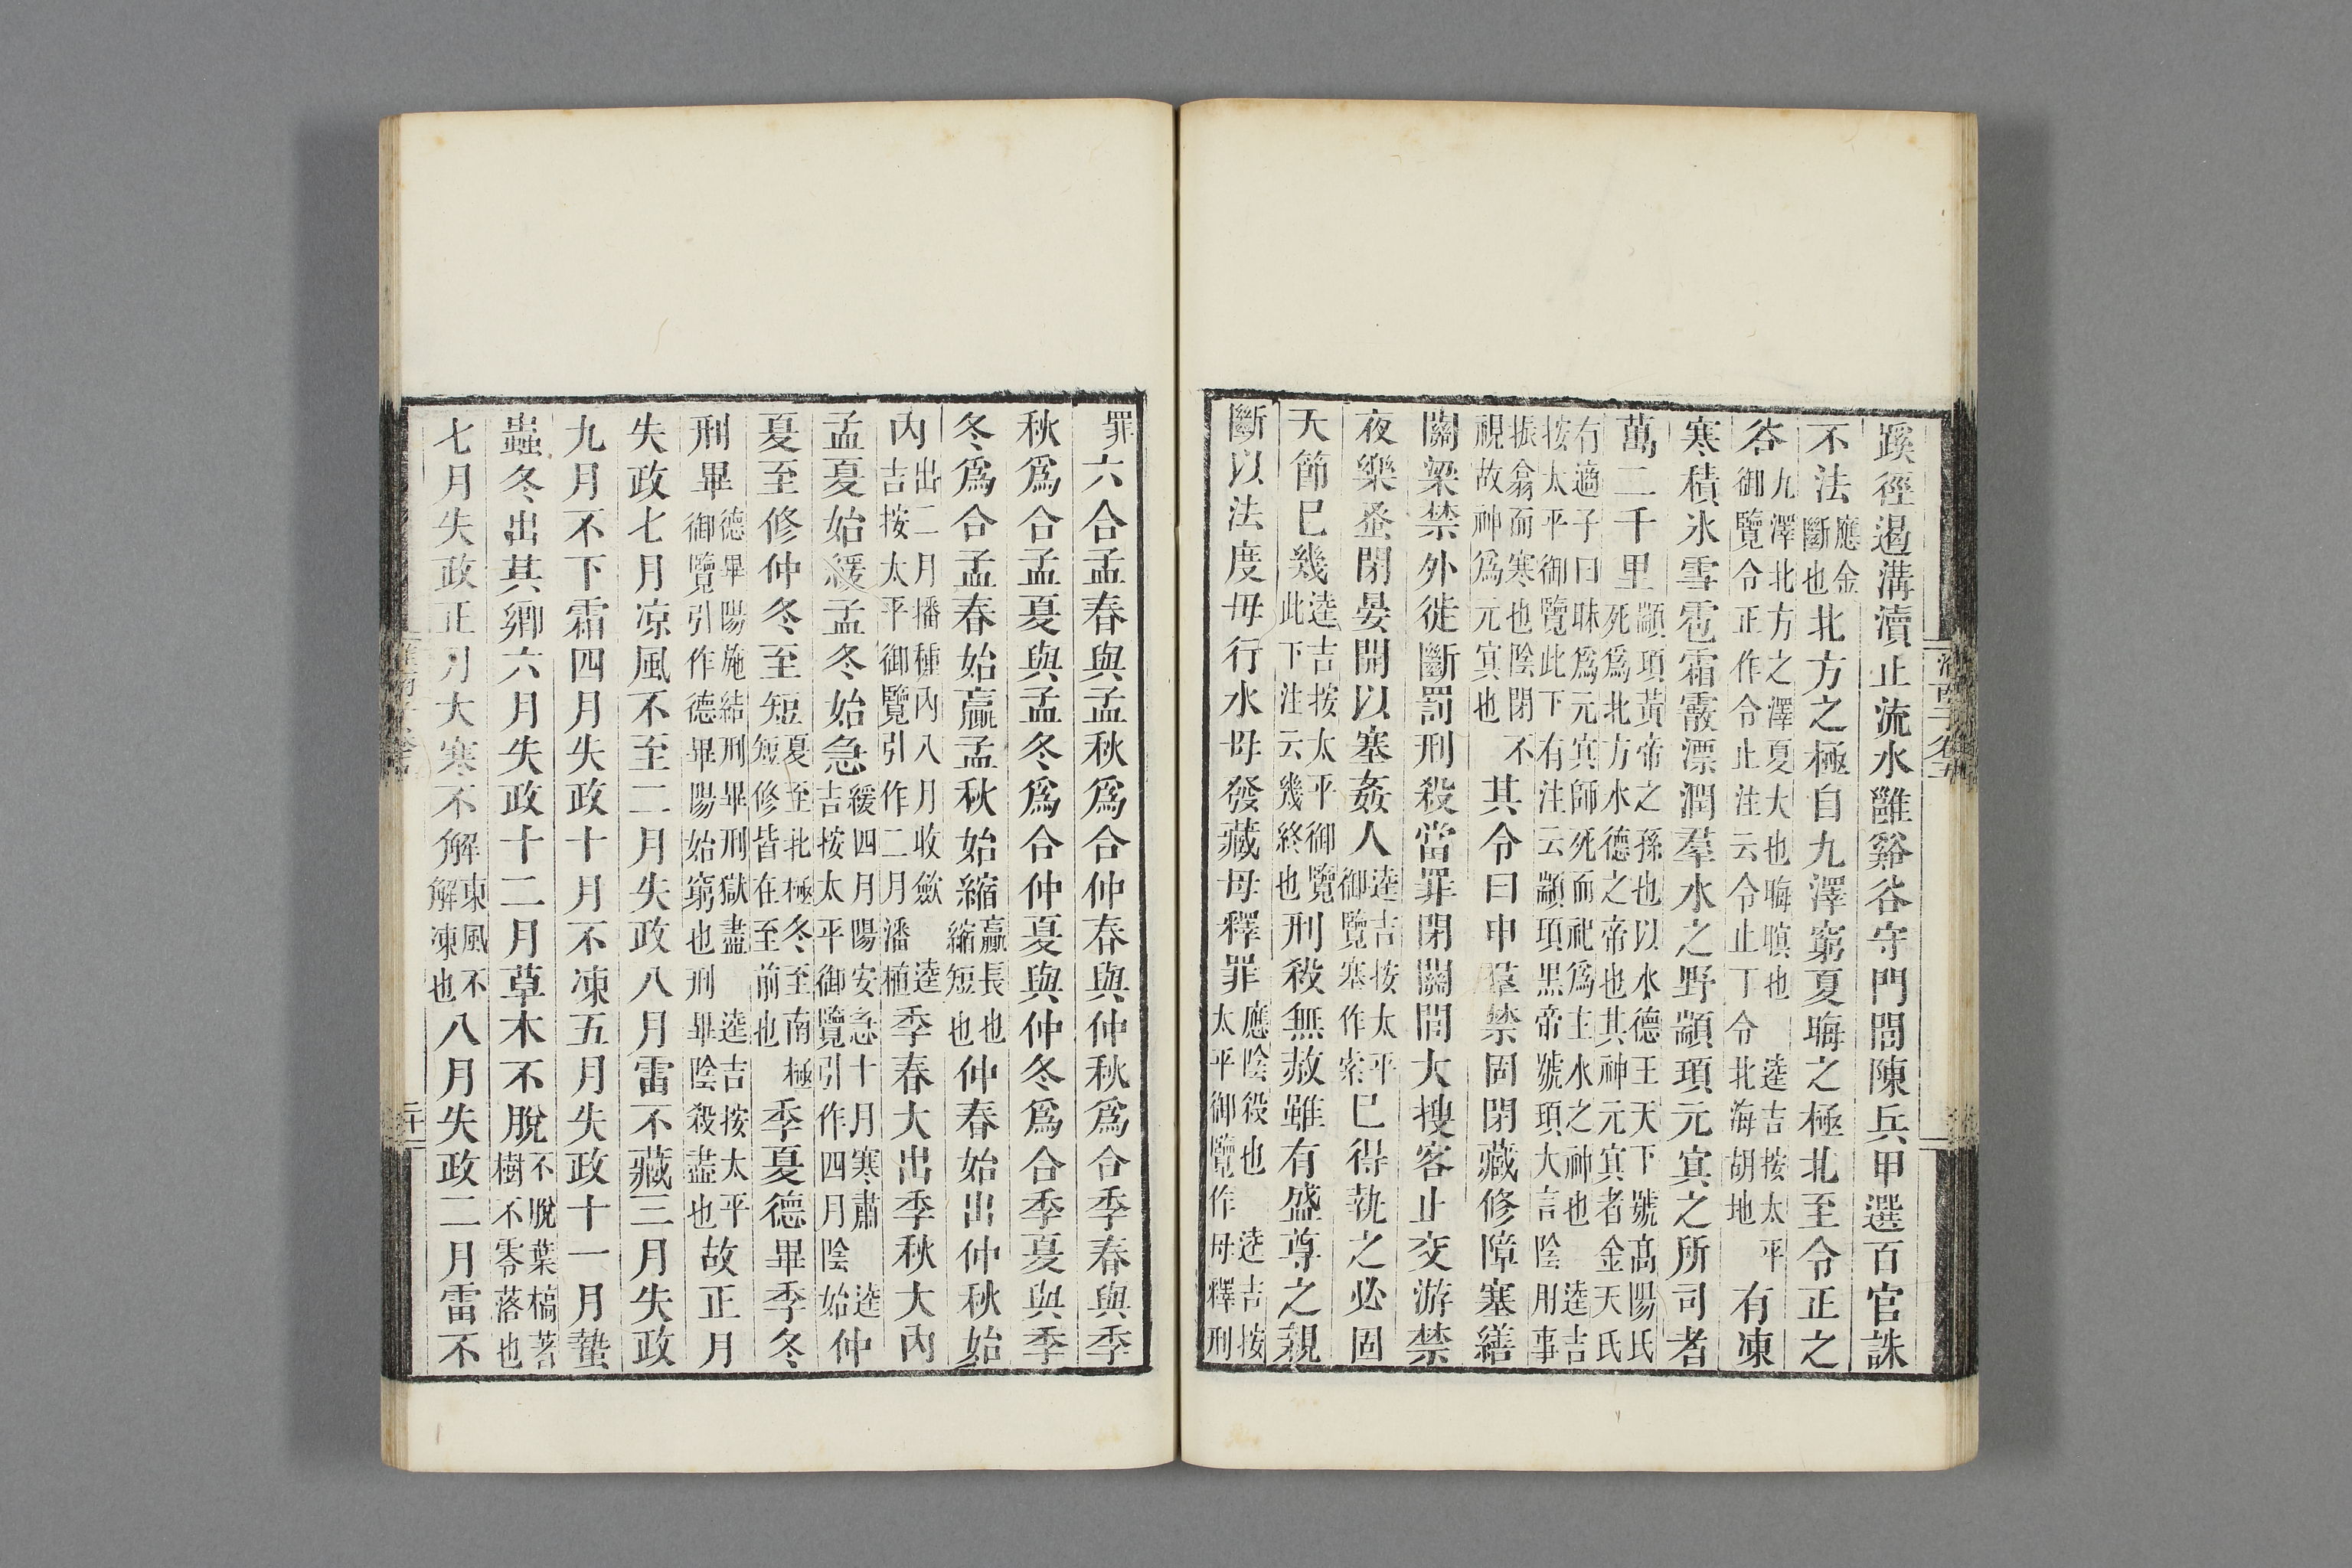 蹊徑遏溝瀆止流水雝谿谷守門閭陳兵甲選百官誅
不法應金斷也北方之極自九澤窮夏晦之極北至令正之
谷九澤北方之澤夏大也晦暝也御覽令正作令止注云令止丁令北海胡地逵吉按太平有凍
寒積冰雪雹霜霰漂潤羣水之野顓頊元冥之所司者
萬二千里顓頊黃帝之孫也以水德王天下號高陽氏死爲北方水德之帝也其神元冥者金天氏
有適子曰昧爲元冥師死而祀爲主水之神也逵吉按太平御覽此下有注云顓頊黑帝號頊大言陰用事
振翕而寒也陰閉不視故神爲元冥也其令曰申羣禁固閉藏修障塞繕
關梁禁外徙斷罰刑殺當罪閉關閭大搜客止交游禁
夜樂蚤閉晏開以塞姦人逵吉按太平御覽塞作索已得執之必固
天節已幾逵吉按太平御覽此下注云幾終也刑殺無赦雖有盛尊之親
斷以法度毋行水毋發藏毋釋罪應陰殺也逵吉按太平御覽作毋釋刑
罪六合孟春與孟秋爲合仲春與仲秋爲合季春與季
秋爲合孟夏與孟冬爲合仲夏與仲冬爲合季夏與季
冬爲合孟春始贏孟秋始縮贏長也縮短也仲春始出仲秋始
內出二月播種內八月收歛逵吉按太平御覽引作二月潘植季春大出季秋大內
孟夏始緩孟冬始急緩四月陽安急十月寒肅逵吉按太平御覽引作四月陰始仲
夏至修仲冬至短夏至北極冬至南極短修皆在至前也季夏德畢季冬
刑畢德畢陽施結刑畢刑獄盡逵吉按太平御覽引作德畢陽始窮也刑畢陰殺盡也故正月
失政七月凉風不至二月失政八月雷不藏三月失政
九月不下霜四月失政十月不凍五月失政十一月蟄
蟲冬出其鄉六月失政十二月草木不脫不脫葉槁著樹不零落也
七月失政正月大寒不解東風不解凍也八月失政二月雷不